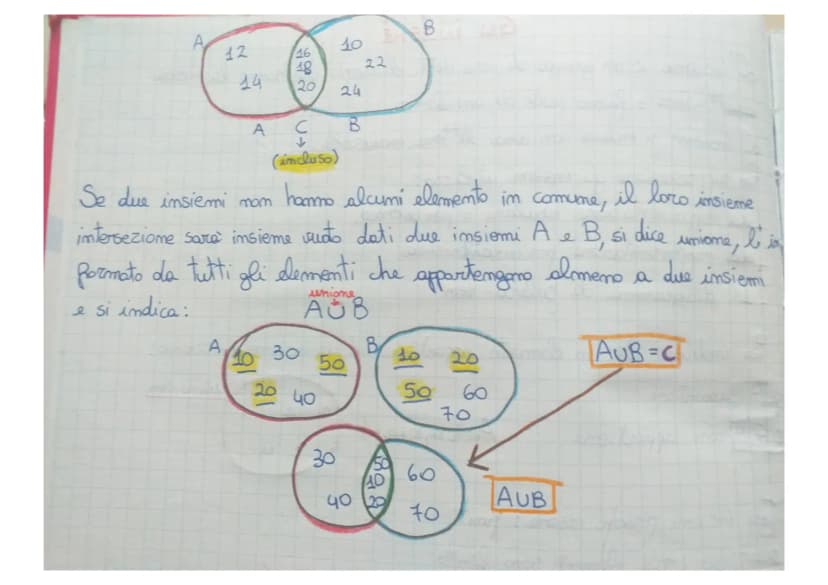 A B
12 16 10
14 18 22
20 24
A C B
(incluso)
Se due insiemi non hanno alcuni elemento in comune, il loro insieme
intersezione sarà insieme vuoto dati due insiemi A e B, si dice unione, l'in
formato da tutti gli elementi che appartengono almeno a due insiemi
unione
e si indica: A U B
A 10 30 50 B 10 20 AUB=C
20 40 50 60
70
30 50 60
10
40 20 70 AUB